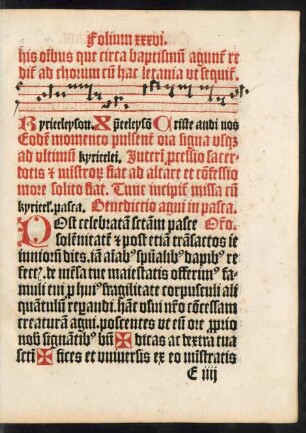 Folium xxxvi.
his oĩbus que circa baptismũ agunt̃ re
diẽt ad chorum cũ hac letania vt sequit̃.
Kyrieeleyson. Xp̃eeleysõ Criste audi nos
Eodẽ momento pulsent̃ oĩa signa vsqȝ
ad vltimũ kyrieelei. Interĩ p̃cessio sacer
dotis & mistroȝ fiat ad altare et cõfessio
more solito fiat. Tunc incipit̃ missa cũ
kyrieel. pasca. Benedictio agni in pasca.
POst celebratam sctãm pasce Or̃o.
solẽnitatẽ & post etiã trãsactos ie
iuniorũ dies. tã aĩabȝ spũalibȝ dapibȝ re
fect. de mẽsa tue maiestatis offerimȝ fa
muli tui p hui fragilitate corpusculi ali
quãtulũ repandi. hãc vsui nr̃o cõcessam
creaturam agni. poscentes vt eũ ore p̃prio
nobȝ signãtibȝ bñ✠dicas ac dextra tua
scti✠fices et vniuersis ex eo mĩstratis
E iiij